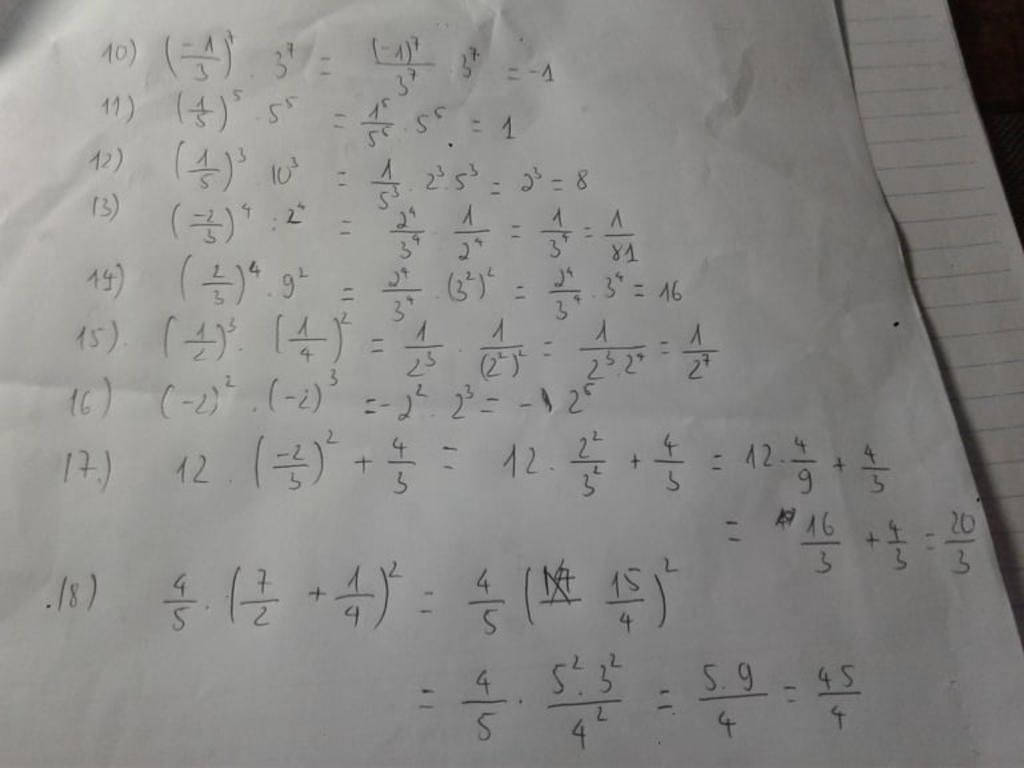 10) (-1/3)^7 . 3^7 = (-1)^7/3^7 . 3^7 = -1
11) (1/5)^5 . 5^5 = 1^5/5^5 . 5^5 = 1
12) (1/5)^3 . 10^3 = 1/5^3 . 2^3 . 5^3 = 2^3 = 8
13) (-2/3)^4 : 2^4 = 2^4/3^4 . 1/2^4 = 1/3^4 = 1/81
14) (2/3)^4 . 9^2 = 2^4/3^4 . (3^2)^2 = 2^4/3^4 . 3^4 = 16
15). (1/2)^3 . (1/4)^2 = 1/2^3 . 1/(2^2)^2 = 1/2^3.2^4 = 1/2^7
16) (-2)^2 . (-2)^3 = -2^2 . 2^3 = - 2^5
17.) 12 . (-2/3)^2 + 4/3 = 12 . 2^2/3^2 + 4/3 = 12 . 4/9 + 4/3
= 16/3 + 4/3 = 20/3
.18) 4/5 . (7/2 + 1/4)^2 = 4/5 (15/4)^2
= 4/5 . 5^2 . 3^2/4^2 = 5.9/4 = 45/4